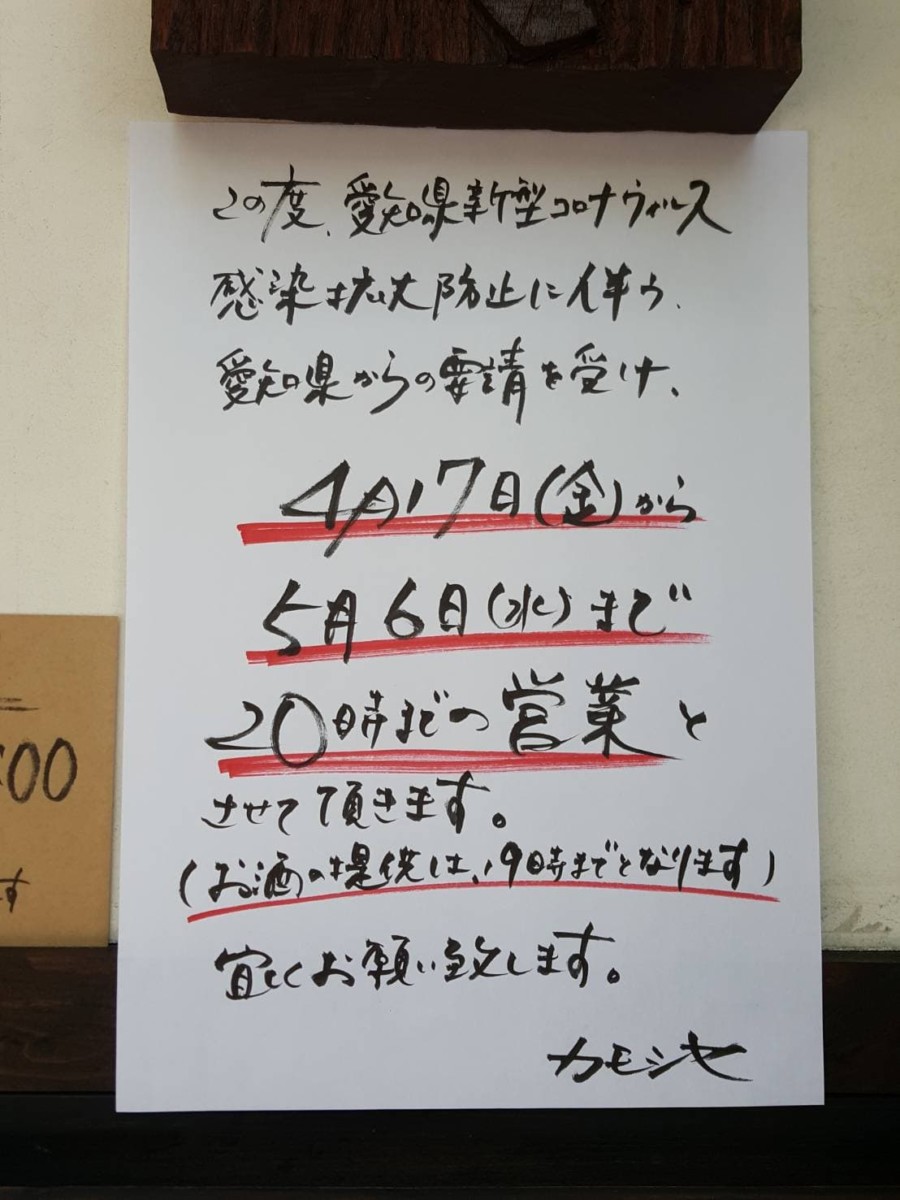 この度、愛知県新型コロナウィルス
感染拡大防止に伴う、
愛知県からの要請を受け、
4月17日(金)から
5月6日(水)まで
20時までの営業と
させて頂きます。
(お酒の提供は、19時までとなります)
宜しくお願い致します。
カモシヤ
00
す